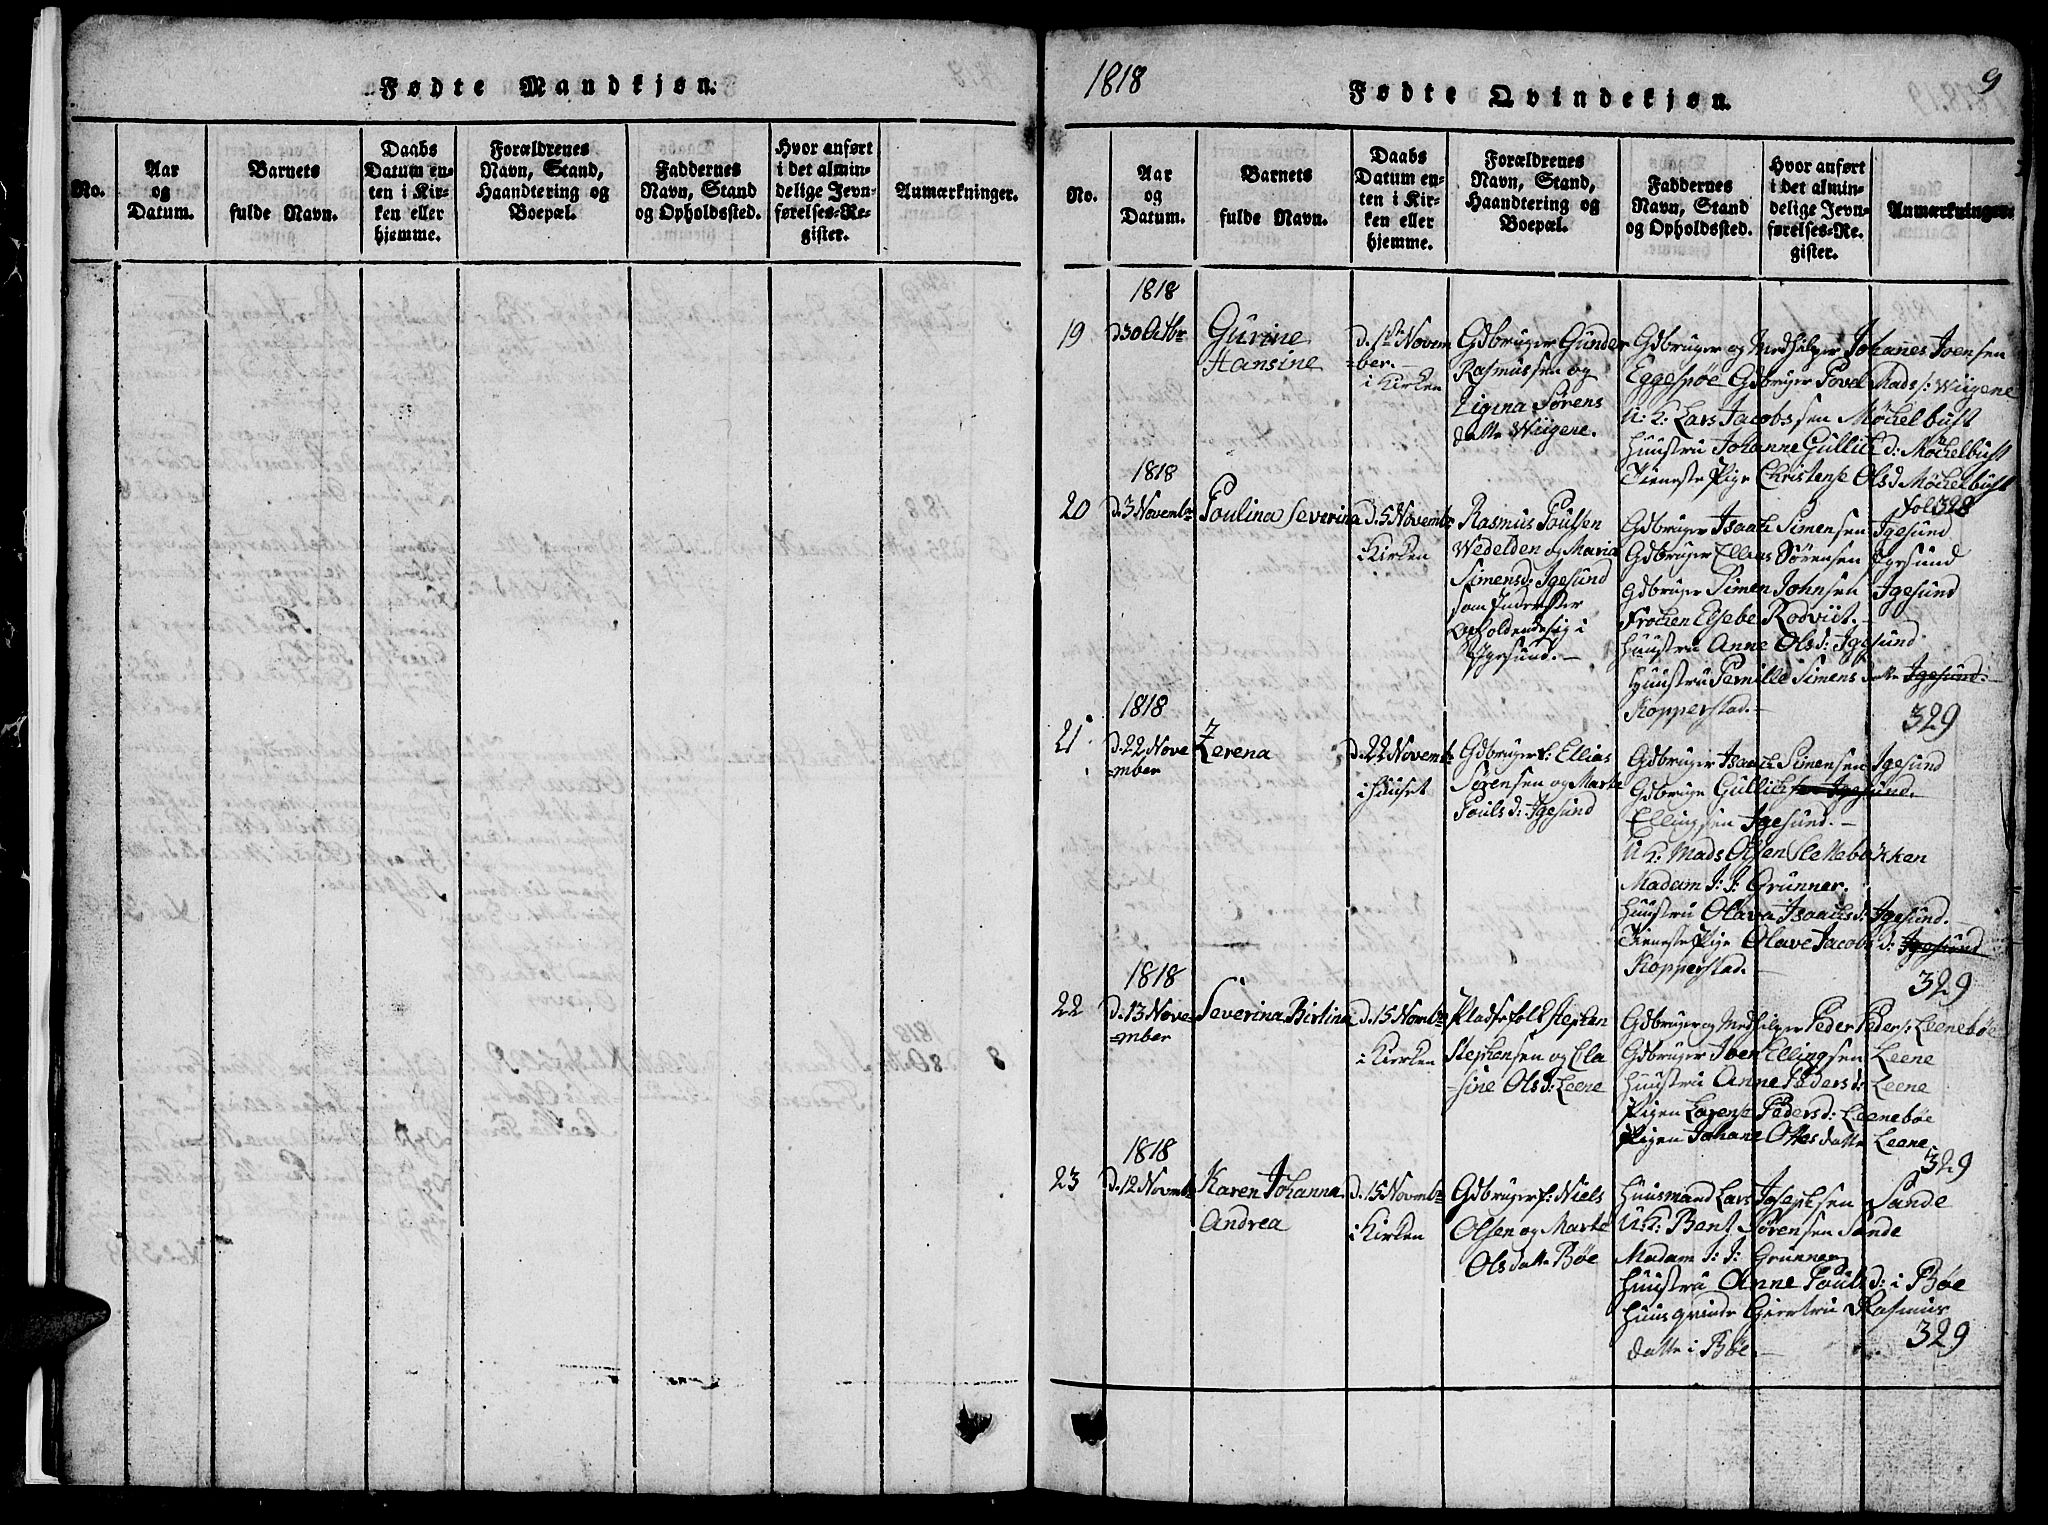 Fødte Mandkjøn.
No.
Aar
og
Datum.
Barnets
fulde Navn.
Daabs
Datum en-
ten i Kir-
ken eller
hjemme.
Forældrenes
Navn, Stand,
Haandtering og
Boepæl.
Faddernes
Navn, Stand
og Opholdssted.
Hvor anført
i det almin-
delige Jevn-
førelses-Re-
gister.
Anmærkninger.
1818
Fødte Qvindekjøn.
9
No.
Aar
og
Datum.
Barnets
fulde Navn.
Daabs
Datum en-
ten i Kir-
ken eller
hjemme.
Forældrenes
Navn, Stand,
Haandtering og
Boepæl.
Faddernes
Navn, Stand
og Opholdssted.
Hvor anført
i det almin-
delige Jevn-
førelses-Re-
gister.
Anmærkninger.
1818
19
d 30 Octbr
Gurine
Hansine
d. 1ste Novem
=ber.
i Kirken
Gdbruger Gunder
Rasmussen og
Sørens
datte Wiigene.
Gdbruger og Medhjelper Johanes Joensen
Eggesbøe Gdbruger Povel Mads s: Wiigene
U: K: Lars Jacobssen Möckelbust
Huustru Johanne Gullich d: Möckelbust
Tieneste Pige Christense Ols d Möckelbust
Fol 328
1818
20
d. 3 Novembr
Poulina Severina
d. 5 Novembr
i Kirken
Rasmus Poulsen
Wedelden og Maria
Simensd: Igesund
som Inderster
opholdende sig i
Igesund.
Gdbruger Isaach Simensen Igesund
Gdbruger Ellias Sörensen Igesund
Gdbruger Simen Johnsen Igesund
Frøken Elsebe Rodwit.
Huustru Anne Ols d: Igesund
Huustru Pernille Simens datte Igesund.
Kopperstad.
329
1818
21
d. 22 Nove
=mber
Zerena
d. 22 Novembr
i Huuset
Gdbruger f: Ellias
Sørensen og Marte
Pouls d: Igesund
Gdbruger Isaach Simensen Igesund
Gdbruge Gullich sen Igesund.
Ellingsen Igesund.
U K: Mads Olsen Slettebakken
Madam J: J: Grünner.
Huustru Olava Isaachs d: Igesund.
Tieneste Pige Olave Jacobs d: Igesund
Kopperstad.
329
1818
22
d. 13 Nove=
=mber
Severina Birtina
d. 15 Nombr
i Kirken
Pladsefolk Stephen
Stephensen og Ela
=sine Ols d: Leene
Gdbruger og Medhjelper Peder Peder s: Leenebøe
Gdbruger Iver Ellingsen Leene
Huustru Anne Peders d: Leene
Pigen Larense Peders d: Leenebøe
Pigen Johane Ottes datte Leene
329
1818
23
d. 12 Novmbr
Karen Johanna
Andrea
d. 15 Novmbr
i Kirken
Gdbruger f: Niels
Olsen og Marte
Ols datte Bøe
Huusmand Lars Josephsen Sande
U: K: Bent Sørensen Sande
Madam J: J: Grünner
Huustru Anne Pouls d: i Bøe
Huusqvinde Giertru Rasmus
datte i Bøe.
329